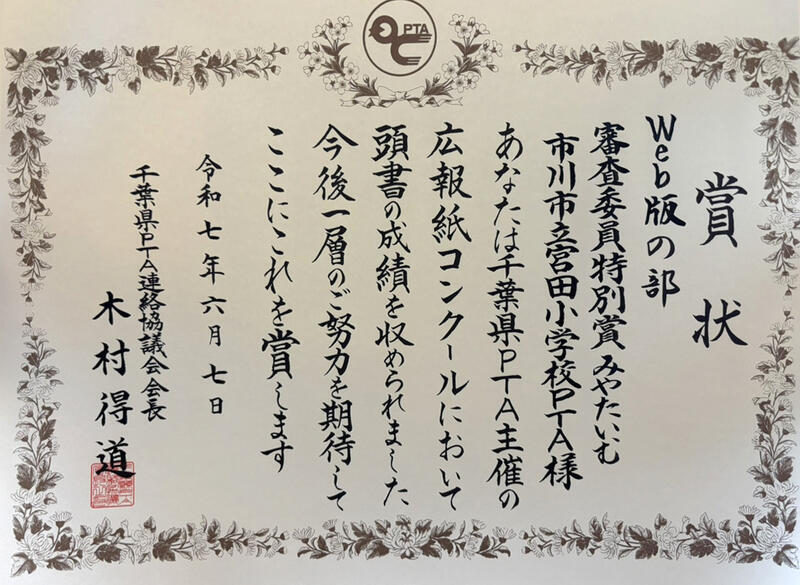 PTA
賞状
Web版の部
審査委員特別賞 みやたいむ
市川市立宮田小学校PTA様
あなたは千葉県PTA主催の
広報紙コンクールにおいて
頭書の成績を収められました
今後一層のご努力を期待して
ここにこれを賞します
令和七年六月七日
千葉県PTA連絡協議会会長
木村得道